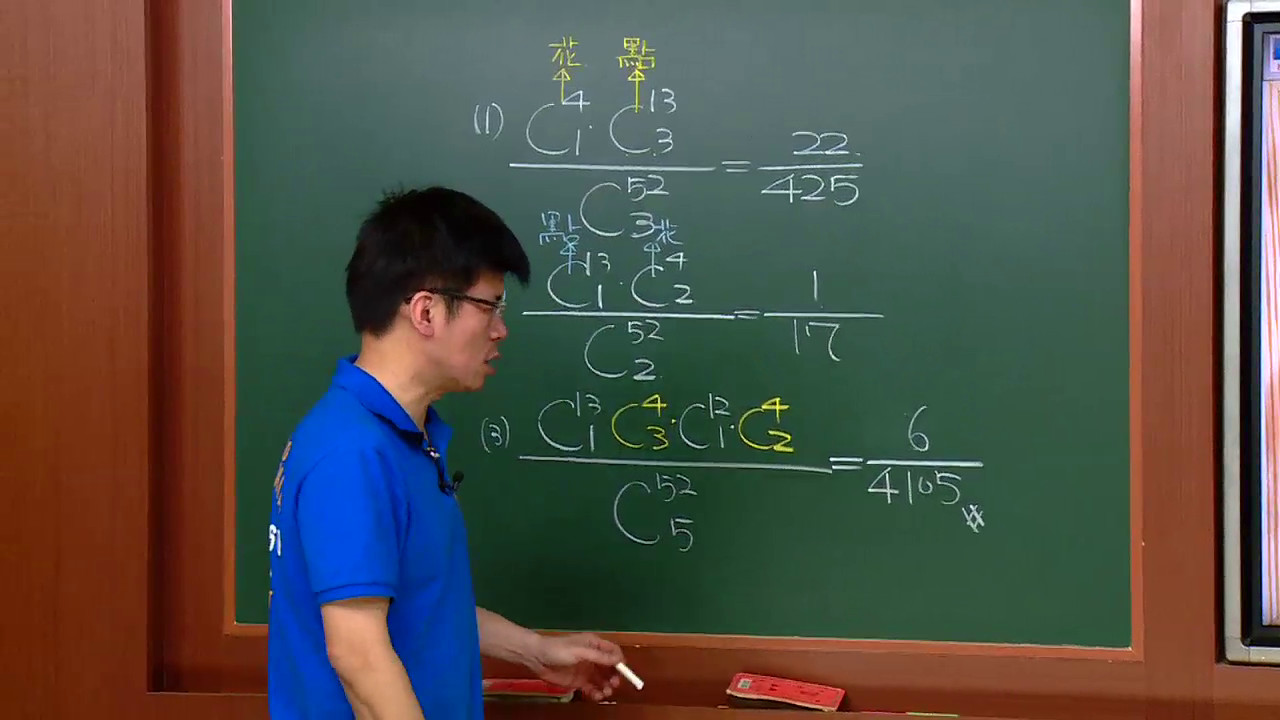 花 點
(1) C⁴₁·C¹³₃ / C⁵²₃ = 22/425
點 花
C¹³₁·C⁴₂ / C⁵²₂ = 1/17
(3) C¹³₁ C⁴₃·C¹²₁·C⁴₂ / C⁵²₅ = 6/4105